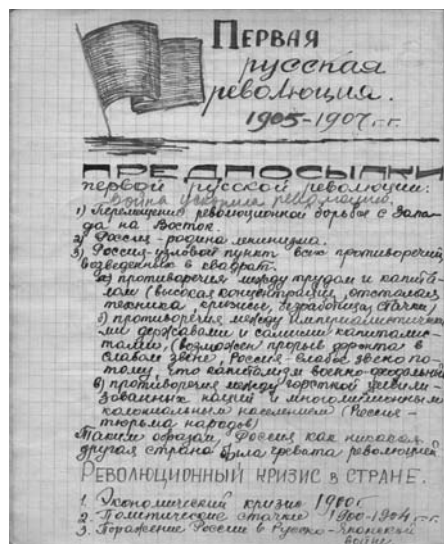 Первая
русская
революция.
1905-1907 г.г.
ПРЕДПОСЫЛКИ
первой русской революции:
Война ускорила революцию.
1) Перемещение революционной борьбы с Запа-
да на Восток.
2) Россия - родина ленинизма.
3) Россия - узловой пункт всех противоречий,
возведенных в квадрат.
а) противоречия между трудом и капита-
лом (высокая концентрация, отсталая
техника, кризисы, безработица, стачки)
б) противоречия между империалистическ
ми державами и самими капиталис-
тами, (возможен прорыв фронта в
слабом звене, Россия - слабое звено по-
тому, что капитализм военно-феодальный
в) противоречия между горсткой цивили-
зованных наций и многомиллионным
колониальным населением (Россия -
тюрьма народов)
Таким образом, Россия как никакая
другая страна была чревата революцией
РЕВОЛЮЦИОННЫЙ КРИЗИС в СТРАНЕ.
1. Экономический кризис 1900г
2. Политические стачки 1900-1904 г.г.
3. Поражение России в Русско-Японской
войне